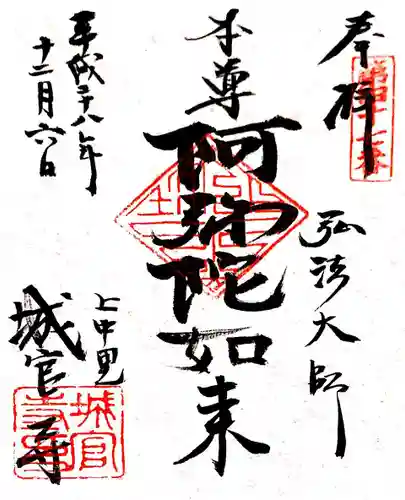 奉拝
弘法大師
本尊
阿弥陀如来
平成二十八年
十二月六日
上中里
城官寺